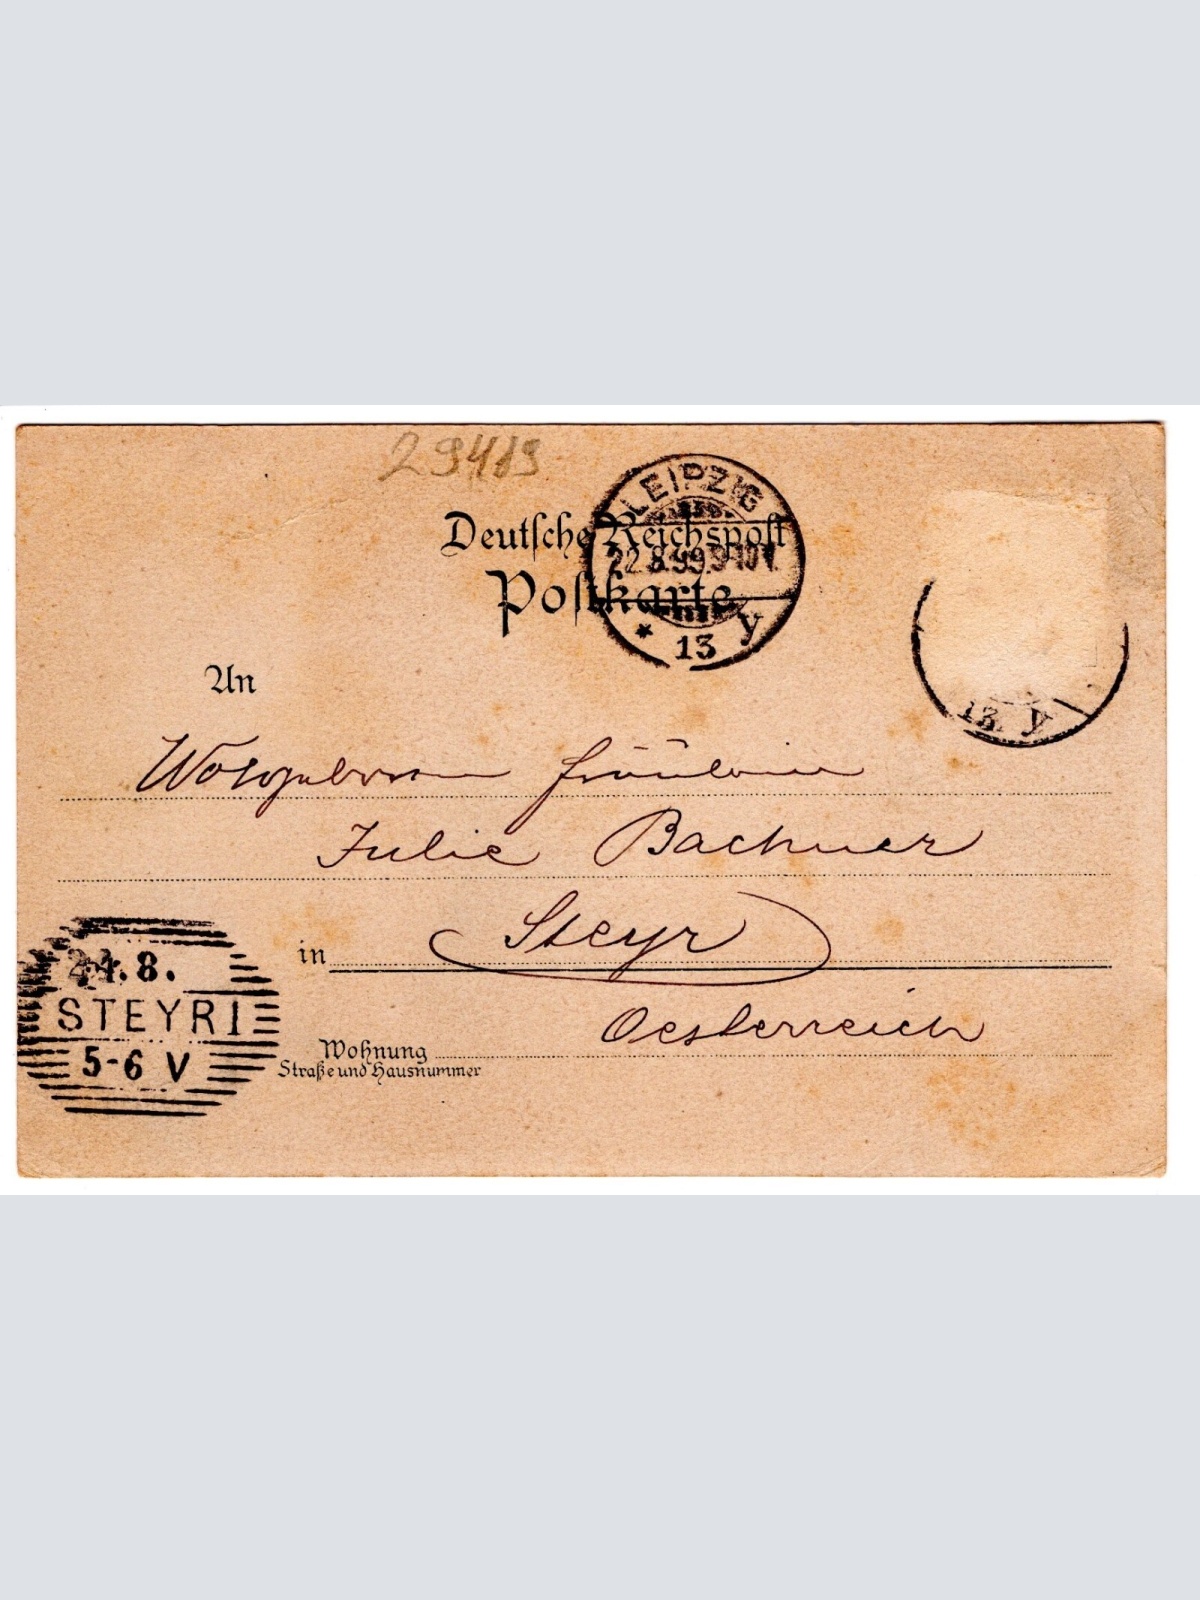 29419
LEIPZIG
Deutsche Reichspost
22.8.99.9-10V.
Postkarte
* 13 y
An
13. y
Wohlgeboren Fräulein
Julie Bachner
24.8.
in Steyr
STEYR 1
Oesterreich
5-6 V
Wohnung
Straße und Hausnummer